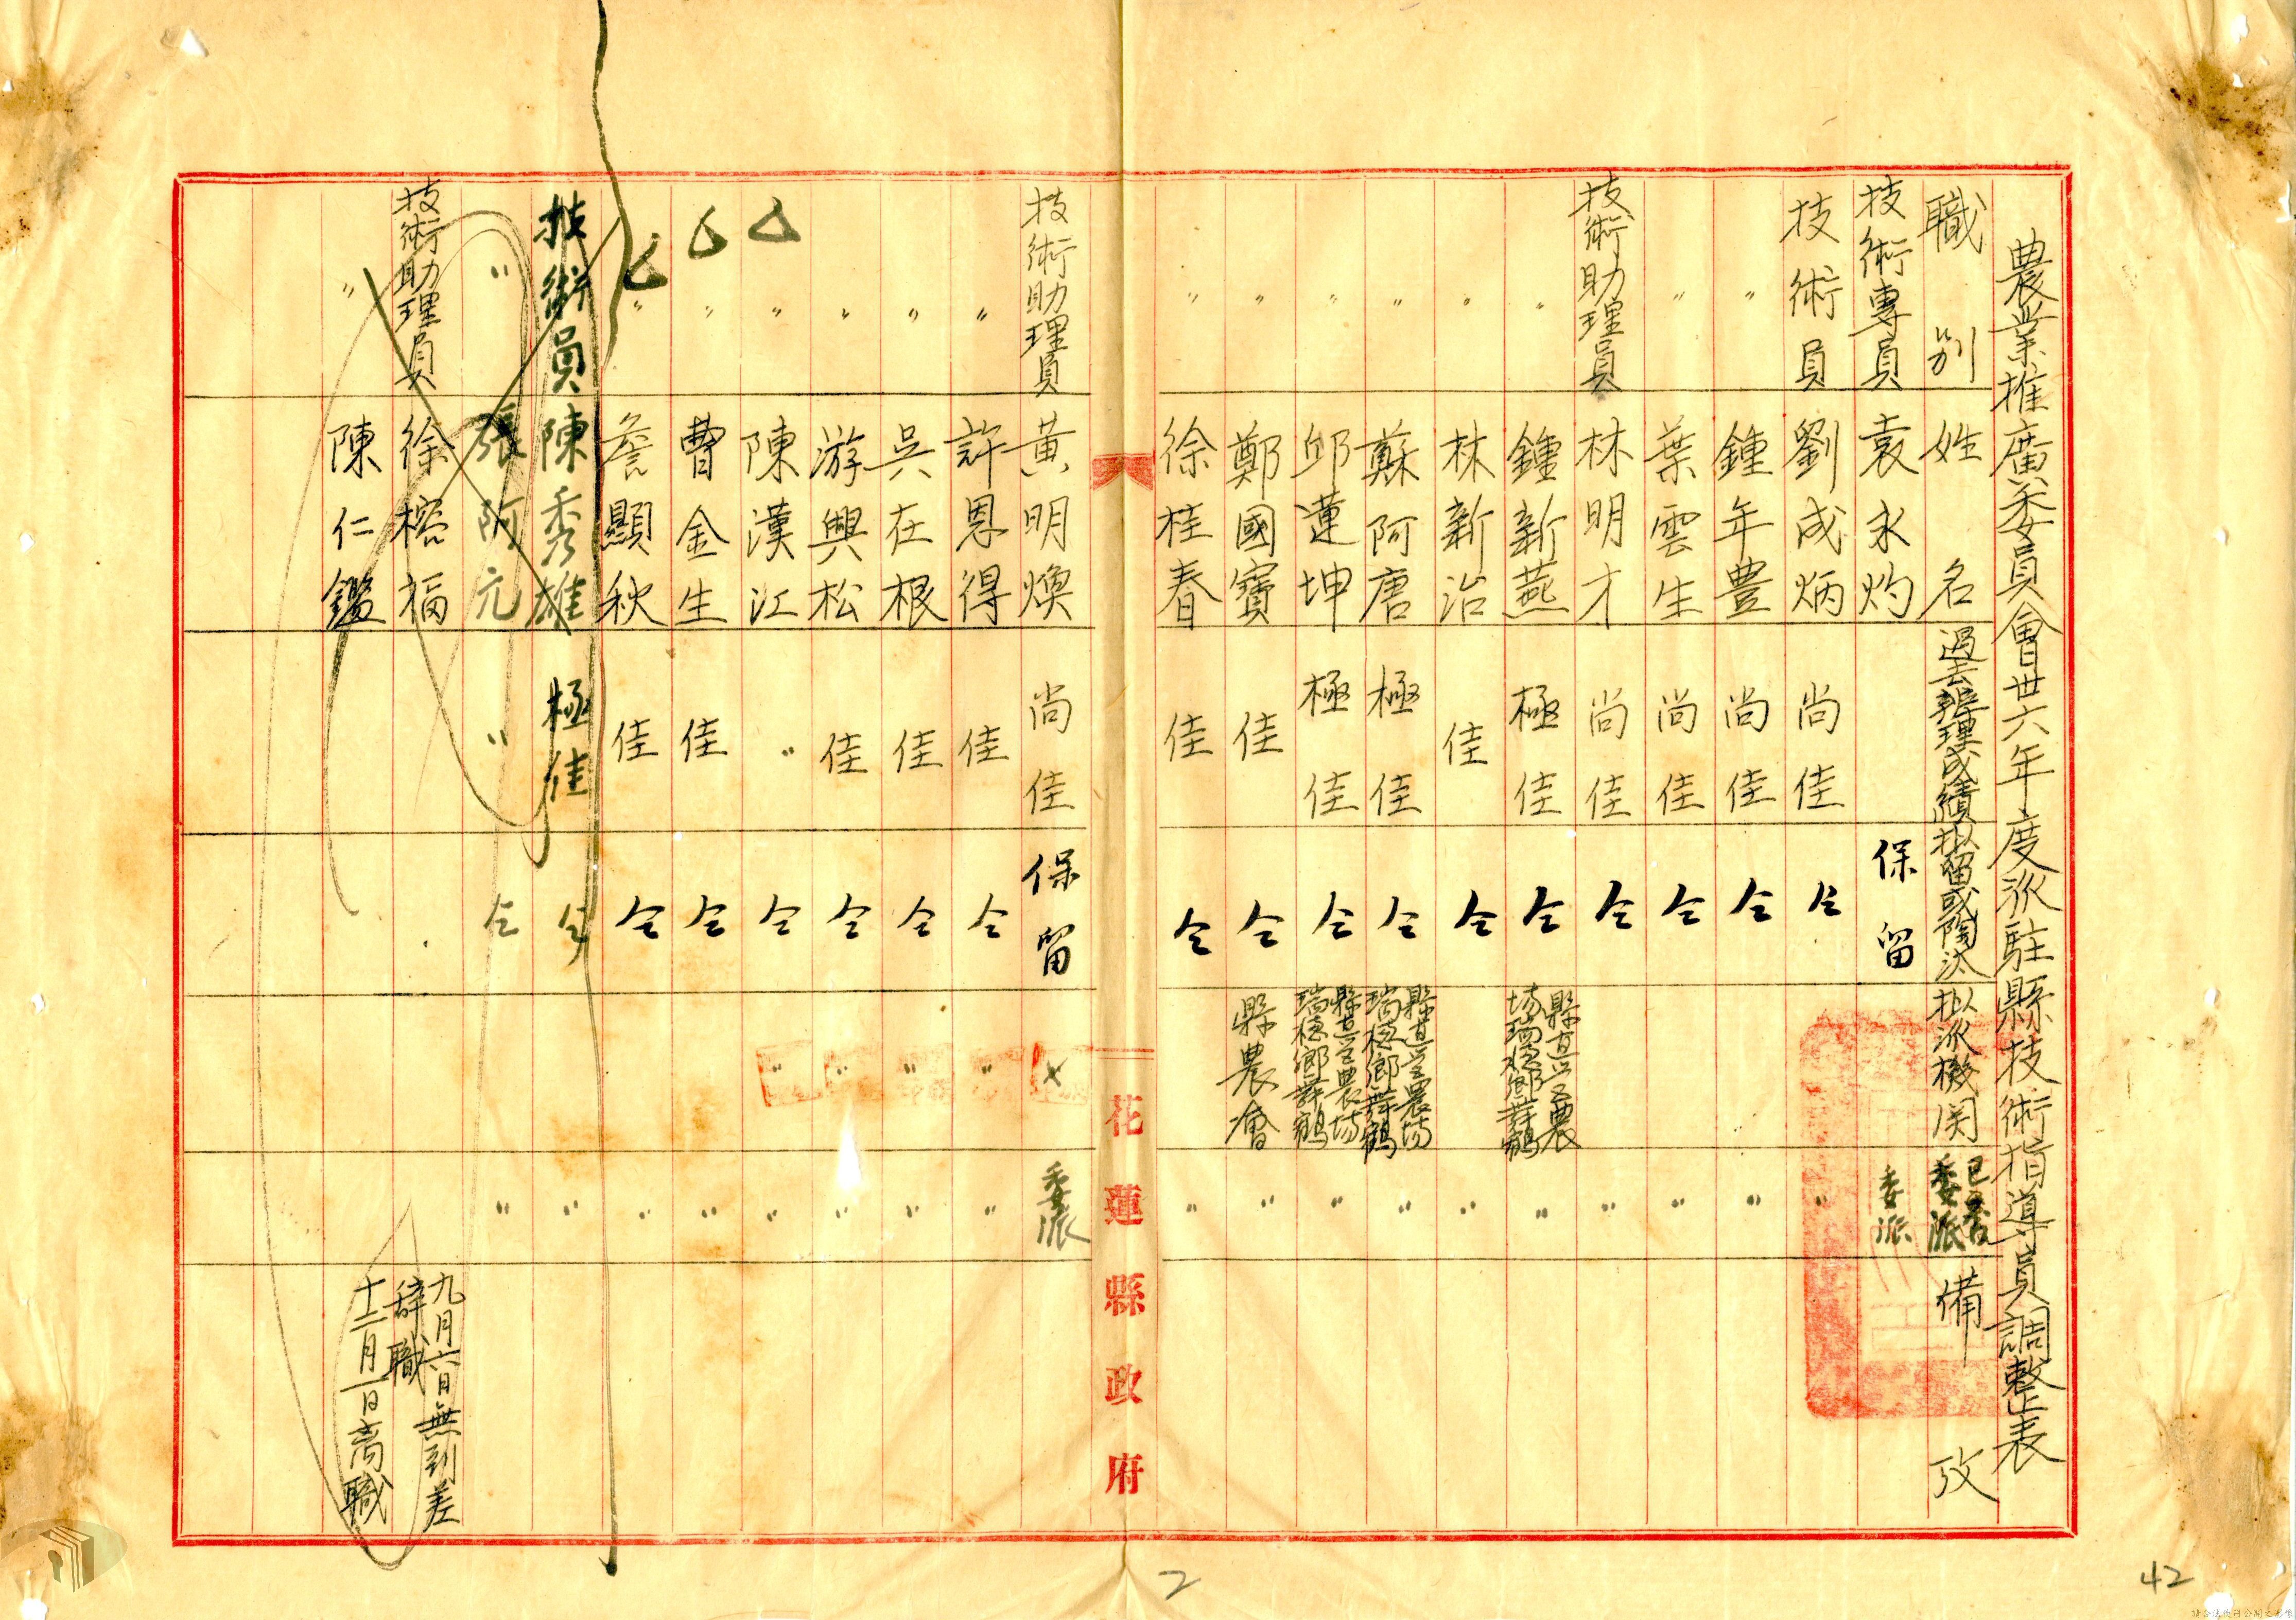 農業推廣委員會卅六年度派駐縣技術指導員調整表
職別 姓名 過去辦理成績 拟留或陶汰 拟派機関 已否委派 備攷
技術專員 袁永灼 保留 委派
技術員 劉成炳 尚佳 仝 〃
〃 鍾年豊 尚佳 仝 〃
〃 葉雲生 尚佳 仝 〃
技術助理員 林明才 尚佳 仝 〃
〃 鍾新燕 極佳 仝 縣直營農場瑞穗鄉舞鶴 〃
〃 林新治 佳 仝 〃
〃 蘇阿唐 極佳 仝 縣直營農場瑞穗鄉舞鶴 〃
〃 邱蓮坤 極佳 仝 縣直營農場瑞穗鄉舞鶴 〃
〃 鄭國寶 佳 仝 縣農會 〃
〃 徐桂春 佳 仝 〃
花蓮縣政府
技術助理員 黃明煥 尚佳 保留 × 委派
〃 許恩得 佳 仝 〃 〃
〃 吳在根 佳 仝 〃 〃
〃 游興松 佳 仝 〃 〃
〃 陳漢江 〃 仝 〃 〃
〃 曹金生 佳 仝 〃
〃 詹顯秋 佳 仝 〃
技術員 陳秀雄 極佳 仝 〃
〃 張阿元 〃 仝 〃
技術助理員 徐榕福 九月六日無到差辞職
〃 陳仁鑑 十二月一日离職
2
42